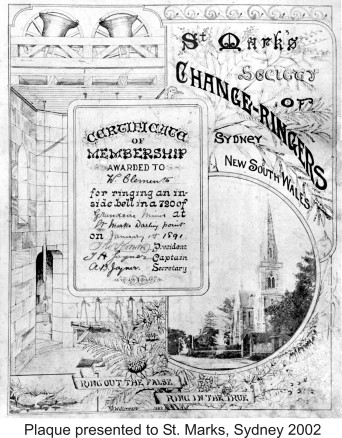 St Mark's
Society
OF
CHANGE-RINGERS
SYDNEY
NEW SOUTH WALES
CERTIFICATE
OF
MEMBERSHIP
AWARDED TO
H Clements
for ringing an in-
side bell in a 720 of
Grandsire Minor at
St Marks Darling point
on January 1st 1891
President
Captain
A B Joyner Secretary
RING OUT THE FALSE
RING IN THE TRUE
Plaque presented to St. Marks, Sydney 2002